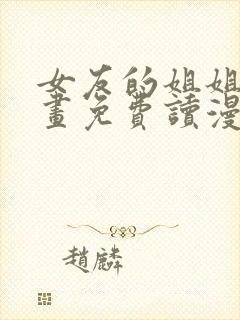 女友的姐姐
畫免費讀漫
趙麟